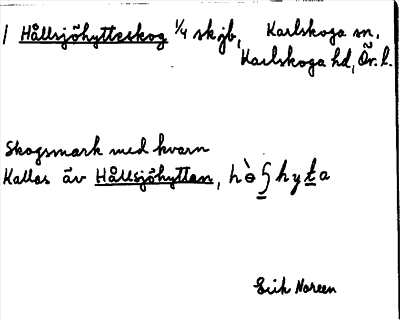 1 Hållsjöhytteskog 1/4 skjb, Karlskoga sn,
Karlskoga hd, Ör. l.
Skogsmark med kvarn
Kallas äv Hållsjöhyttan,
Erik Noreen